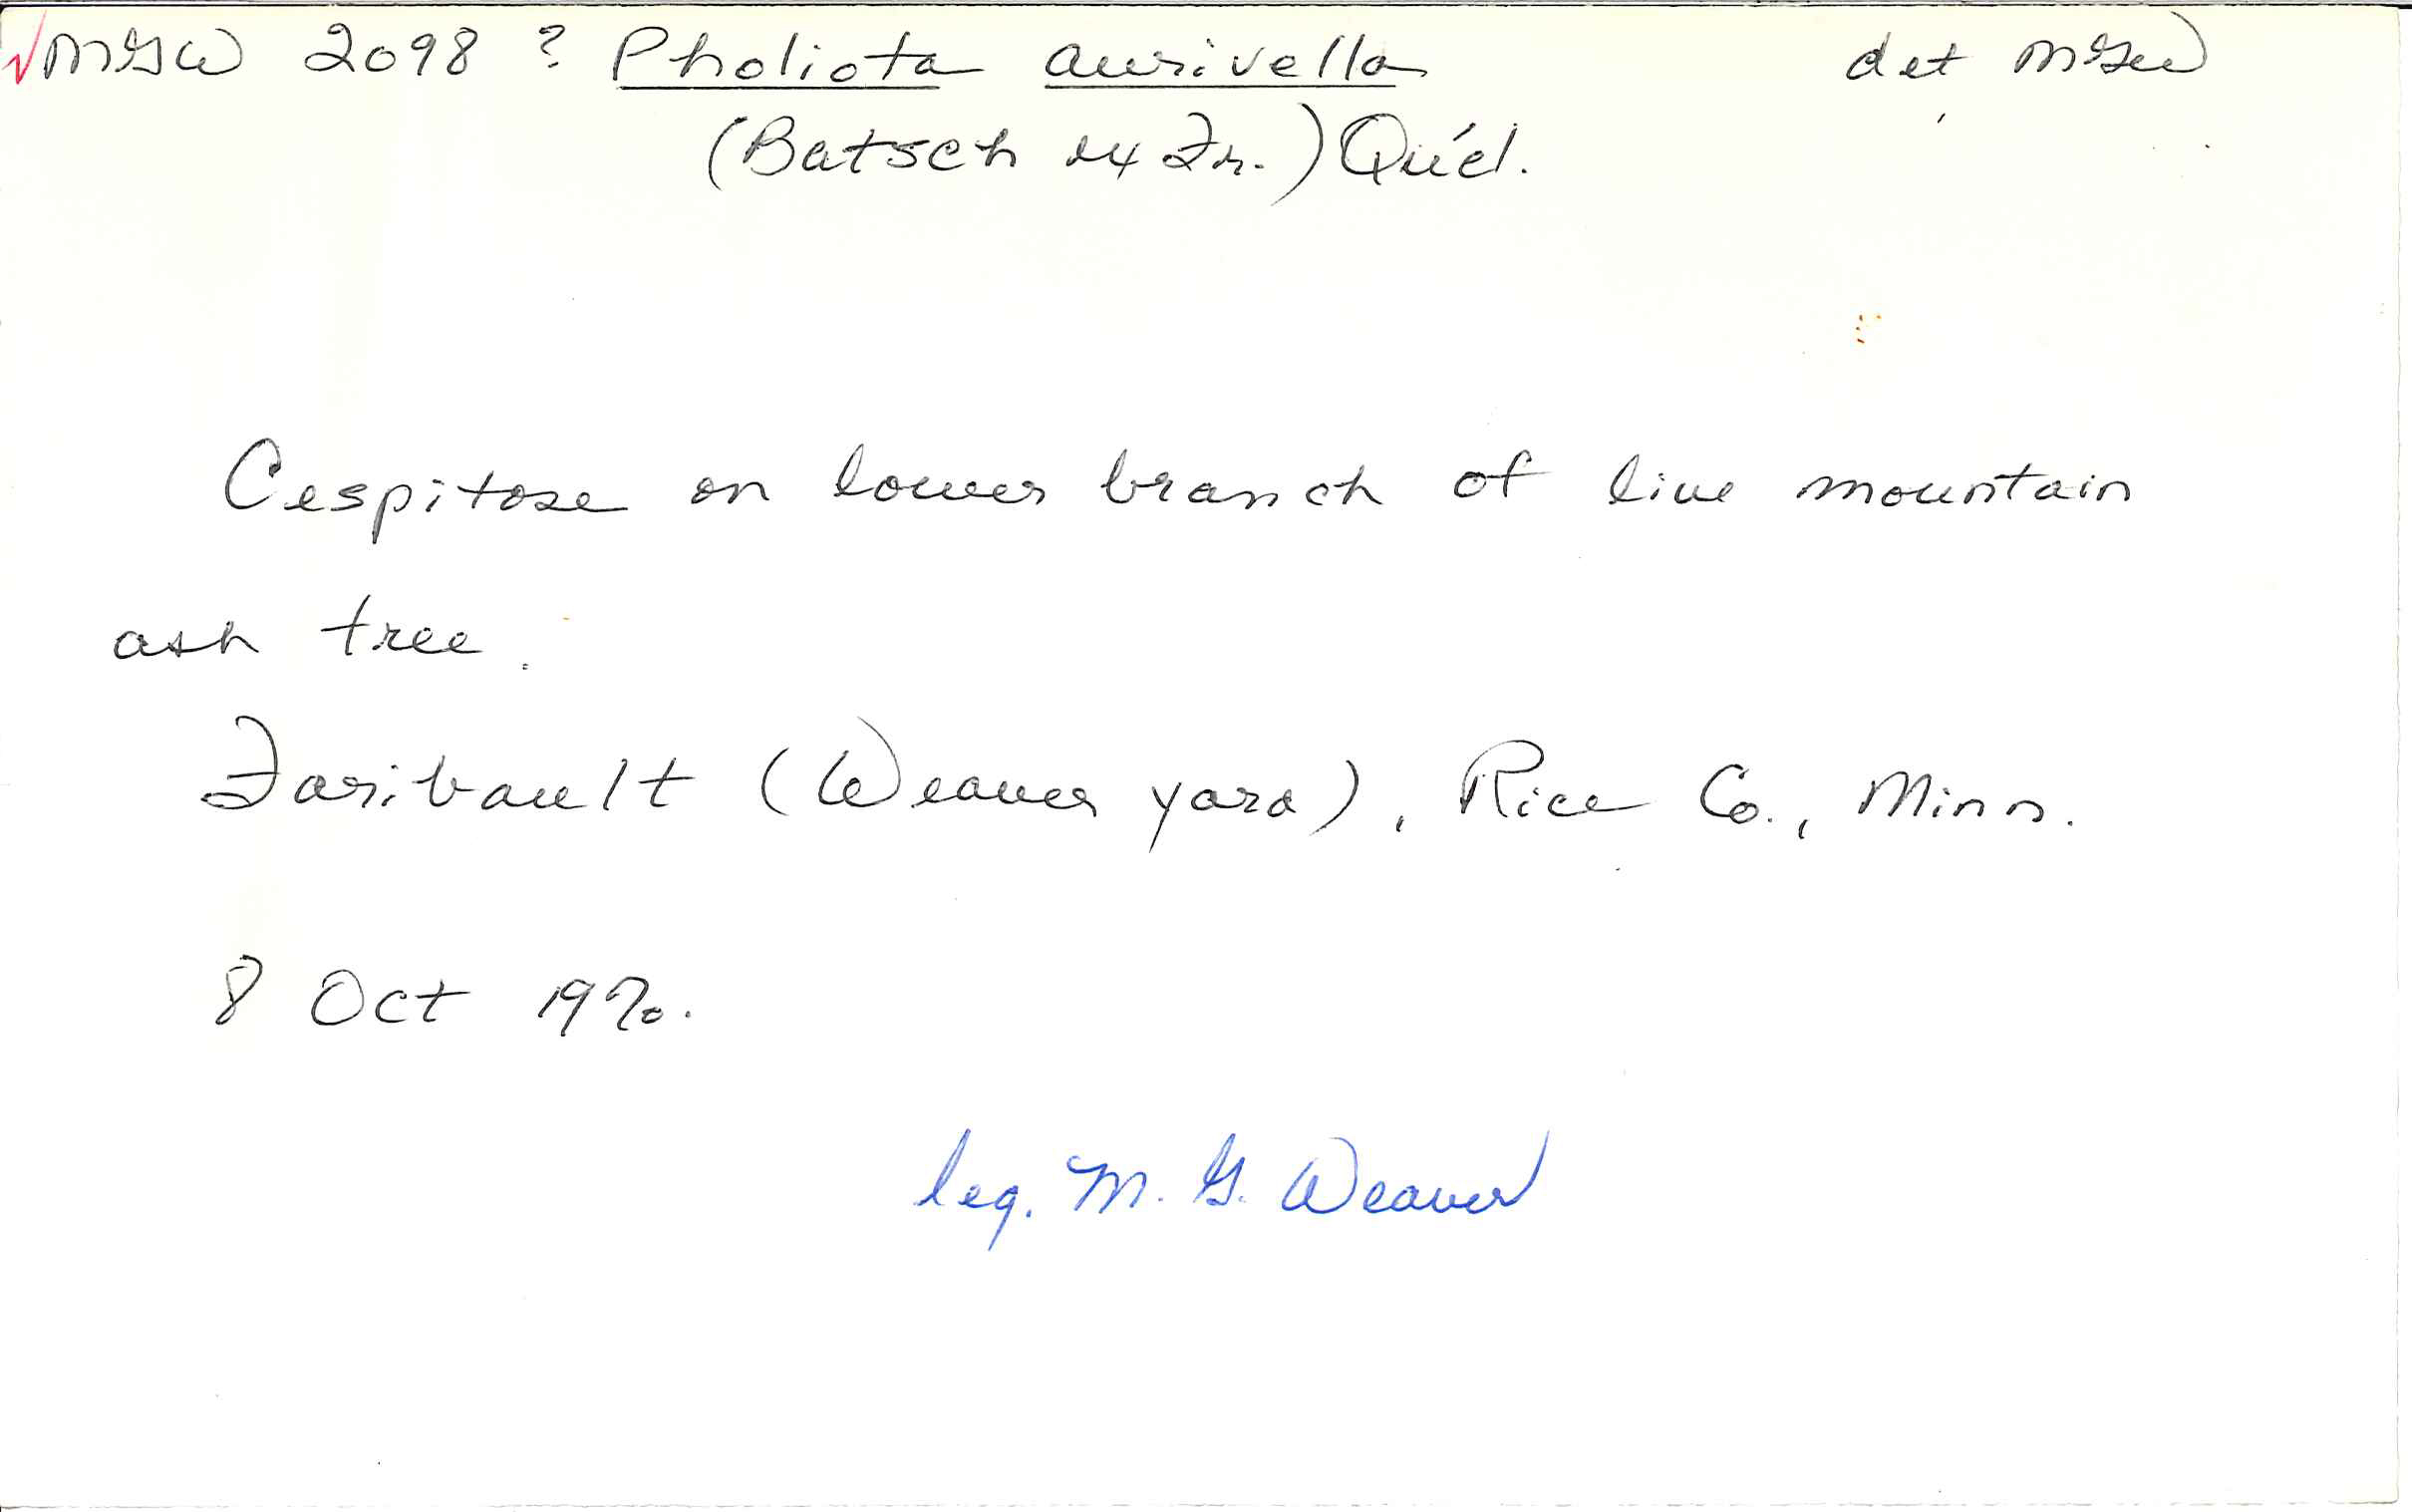 √MGW 2098 ? Pholiota aurivella det MGW
(Batsch ex Fr.) Quél.
Cespitose on lower branch of live mountain
ash tree.
Faribault (Weaver yard), Rice Co., Minn.
8 Oct 1970.
leg. M. G. Weaver